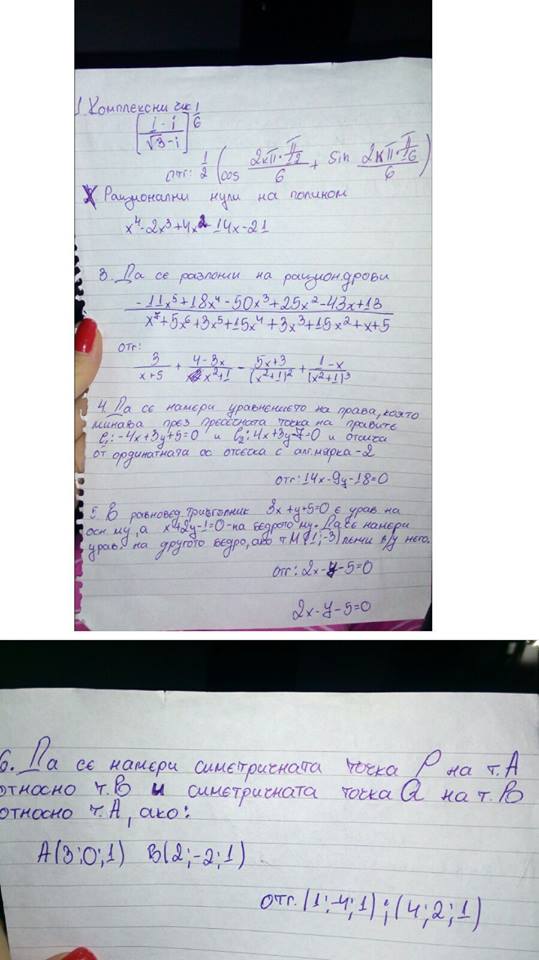 1. Комплексни чис
[i-i / √3-i]^1/6
отг: 1/2 (cos 2kπ·π/12 / 6 + sin 2kπ·π/16 / 6)
2. Рационални нули на полином
x⁴-2x³+4x²-14x-21
3. Да се разложи на рациондроби
-11x⁵+18x⁴-50x³+25x²-43x+13 / x⁷+5x⁶+3x⁵+15x⁴+3x³+15x²+x+5
отг:
3/x+5 + 4-3x/x²+1 - 5x+3/(x²+1)² + 1-x/(x²+1)³
4. Да се намери уравнението на права, която
минава през пресечната точка на правите
l₁: -4x+3y+5=0 и l₂: 4x+3y-7=0 и отсича
от ординатната ос отсечка с алг. мярка -2
отг: 14x-9y-18=0
5. В равнобед. триъгълник 3x+y+5=0 е урав. на
осн. му, а x+2y-1=0 - на бедрото му. Да се намери
урав. на другото бедро, ако т. M(1;-3) лежи в/у него.
отг: 2x-y-5=0
2x-y-5=0
6. Да се намери симетричната точка P на т. A
относно т. B и симетричната точка Q на т. B
относно т. A, ако:
A(3;0;1) B(2;-2;1)
отг. (1;-4;1); (4;2;1)